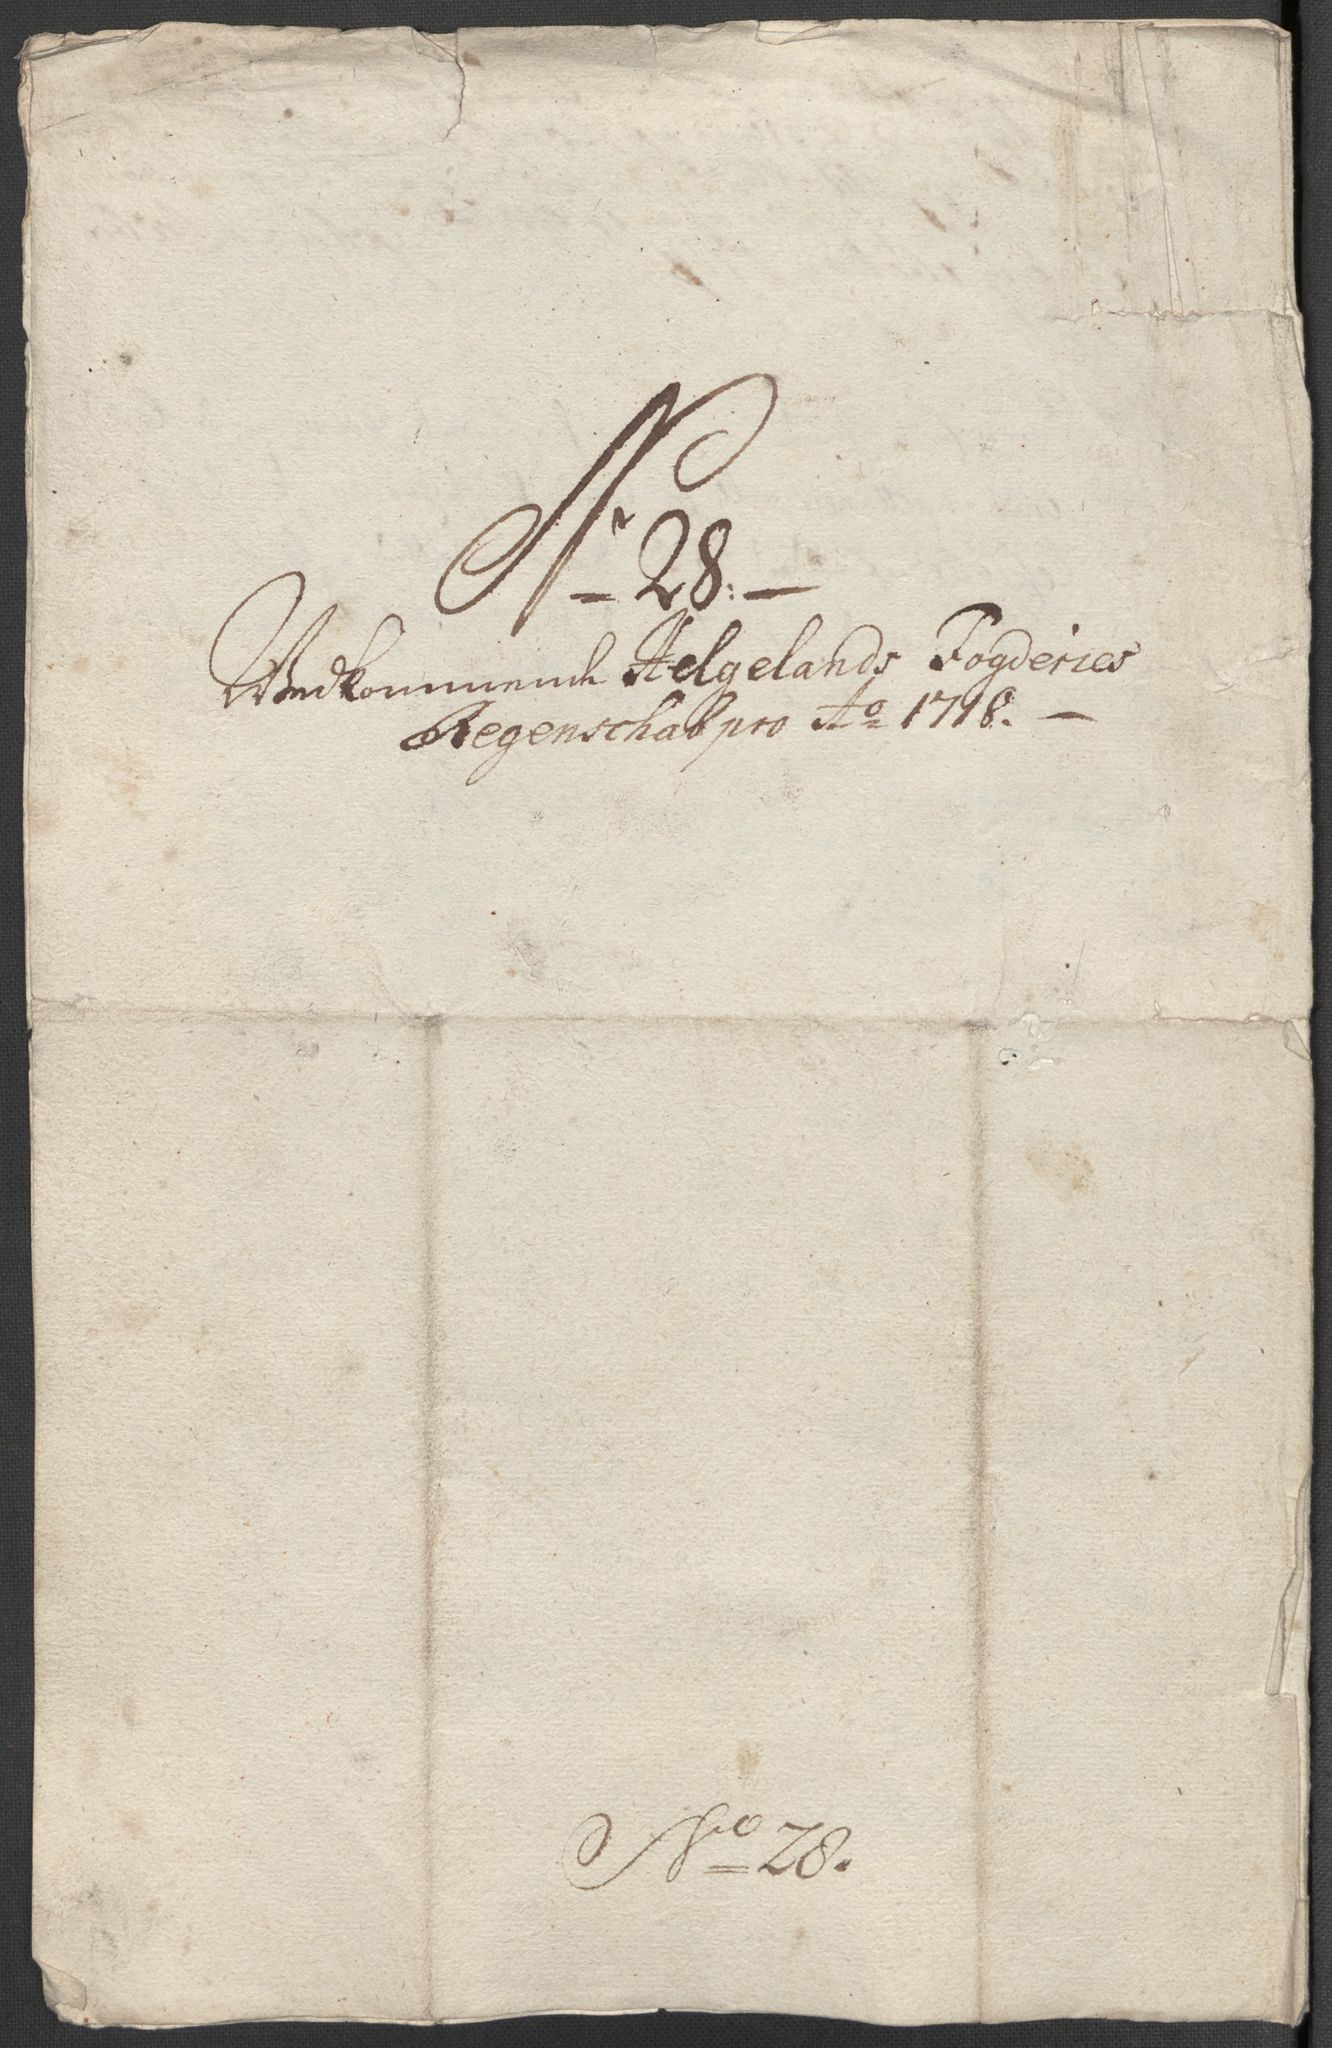 Nr 28.
Vedkommende Helgelands Fogderies
Regenschab pro Ao 1718.
No 28.